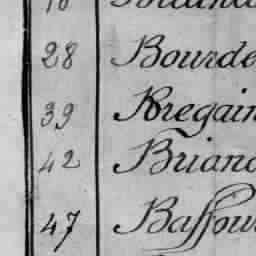 28 Bourde
39 Bregain
42 Briand
47 Baffou